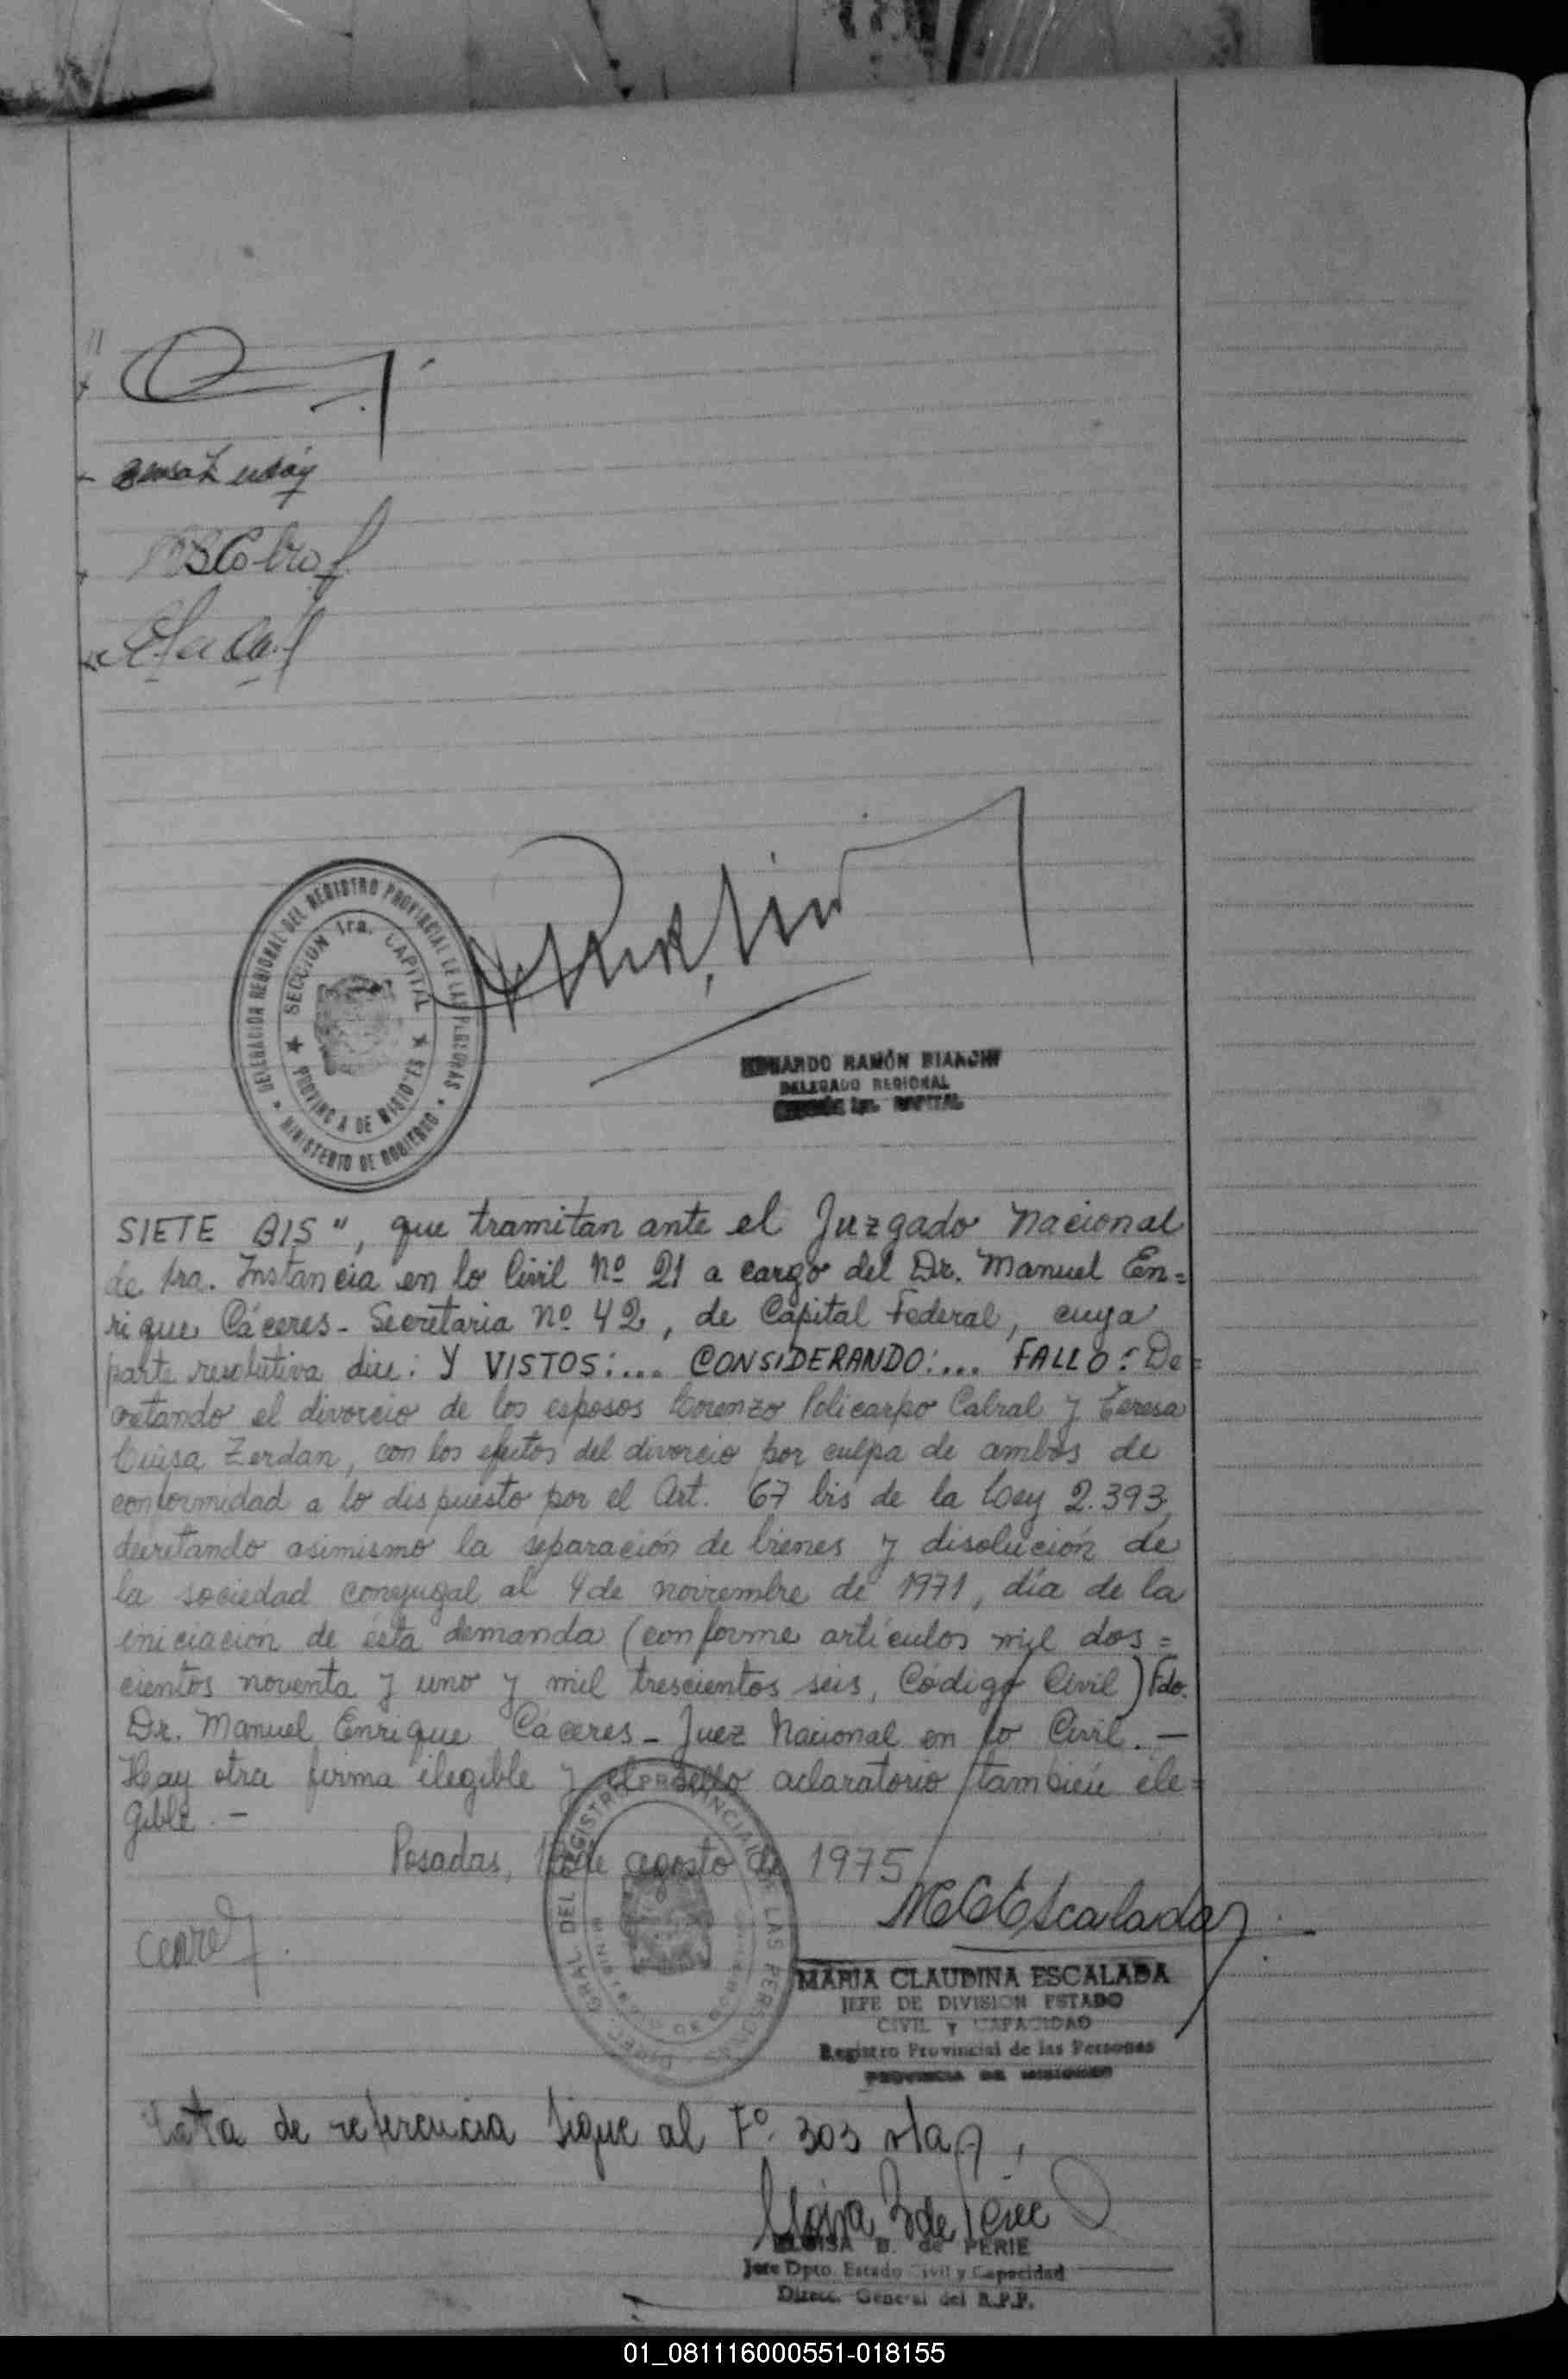 DELEGACION REGIONAL DEL REGISTRO PROVINCIAL DE LAS PERSONAS
MINISTERIO DE GOBIERNO
SECCION 1ra. CAPITAL
PROVINCIA DE MISIONES
EDUARDO RAMÓN BIANCHI
DELEGADO REGIONAL
1ra. CAPITAL
SIETE BIS", que tramitan ante el Juzgado Nacional
de 1ra. Instancia en lo Civil Nº 21 a cargo del Dr. Manuel En=
rique Cáceres - Secretaria Nº 42, de Capital Federal, cuya
parte resolutiva dice: Y VISTOS:... CONSIDERANDO:... FALLO: De=
cretando el divorcio de los esposos Lorenzo Policarpo Cabral y Teresa
Luisa Zerdan, con los efectos del divorcio por culpa de ambos de
conformidad a lo dispuesto por el Art. 67 bis de la Ley 2.393,
decretando asimismo la separación de bienes y disolución de
la sociedad conyugal al 4 de noviembre de 1971, día de la
iniciación de ésta demanda (conforme artículos mil dos=
cientos noventa y uno y mil trescientos seis, Código Civil) Fdo.
Dr. Manuel Enrique Cáceres - Juez Nacional en lo Civil. -
Hay otra firma ilegible y el sello aclaratorio también ile=
gible. -
Posadas, de agosto de 1975
DIREC. GRAL DEL REGISTRO PROVINCIAL DE LAS PERSONAS
MCEscalada
MARIA CLAUDINA ESCALADA
JEFE DE DIVISION ESTADO
CIVIL Y CAPACIDAD
Registro Provincial de las Personas
PROVINCIA DE MISIONES
de referencia sigue al Fº. 303 vta
Eloisa B de Perie
ELOISA B. de PERIE
Jefe Dpto. Estado Civil y Capacidad
Direcc. General del R.P.P.
01_081116000551-018155